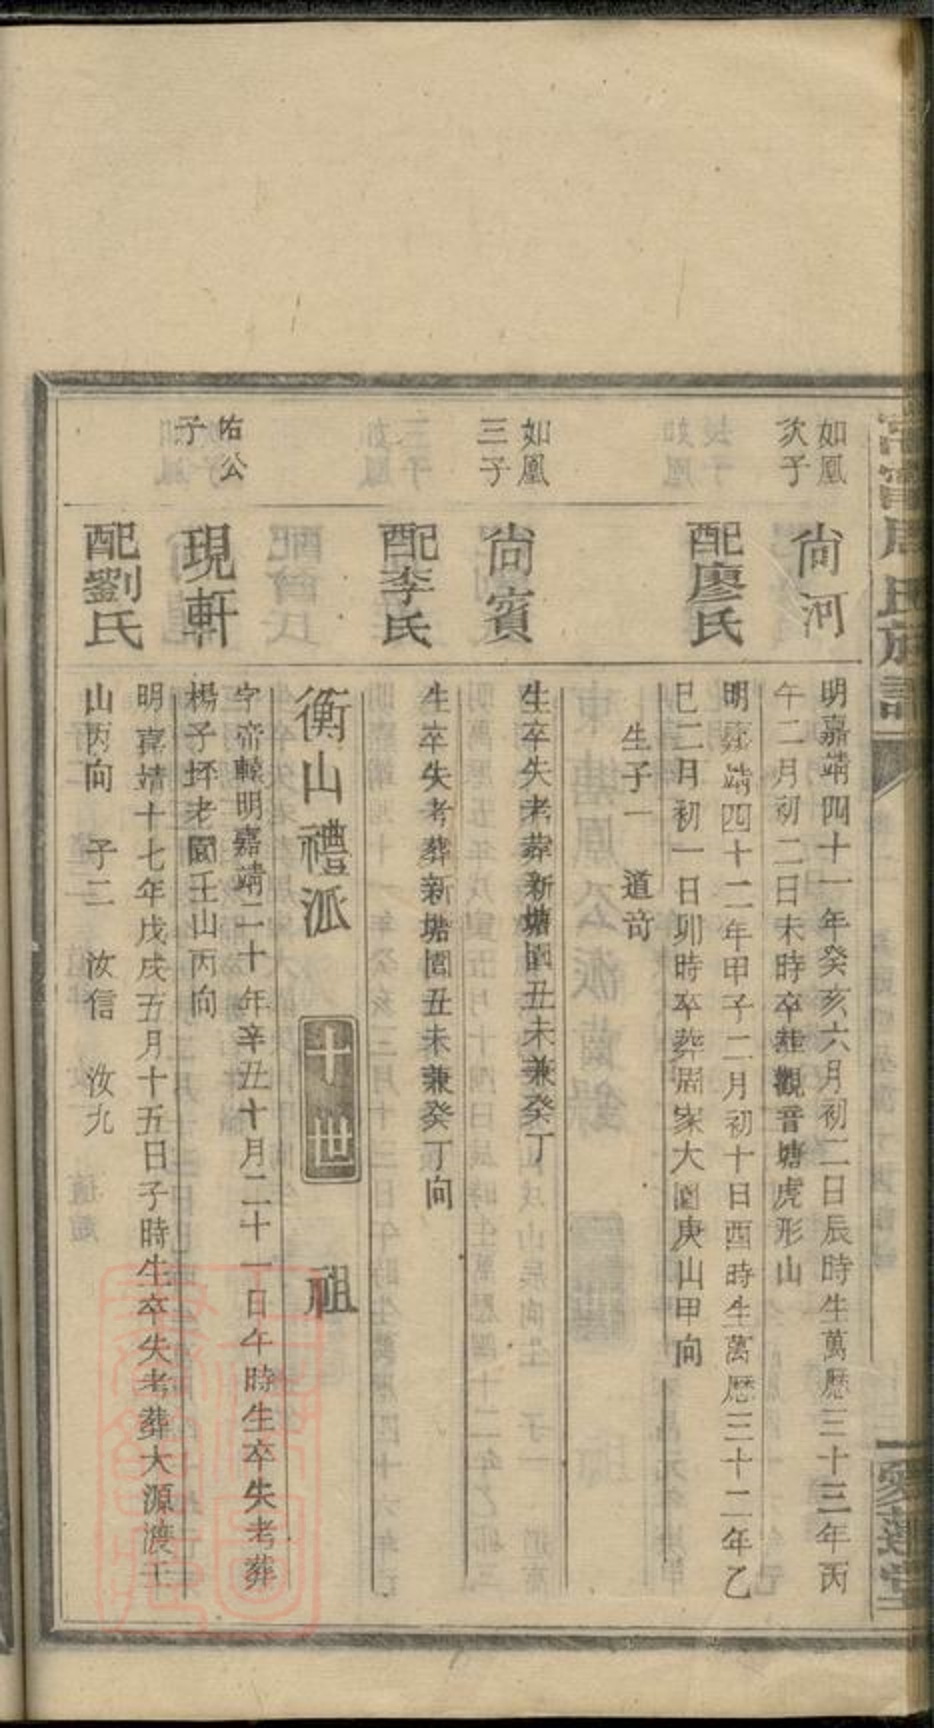 周氏族譜
愛蓮堂
如鳳
次子
尙河
明嘉靖四十一年癸亥六月初二日辰時生萬歷三十三年丙
午二月初二日未時卒葬觀音塘虎形山
配廖氏
明嘉靖四十二年甲子二月初十日酉時生萬歷三十二年乙
巳二月初一日卯時卒葬周家大園庚山甲向
生子一 道苛
如鳳
三子
尙賓
生卒失考葬新塘園丑未兼癸丁
配李氏
生卒失考葬新塘園丑未兼癸丁向
衡山禮派 十世 祖
佑公
子
現軒
字帝轅明嘉靖二十年辛丑十月二十一日午時生卒失考葬
楊子坪老園壬山丙向
配劉氏
明嘉靖十七年戊戌五月十五日子時生卒失考葬大源渡壬
山丙向 子二 汝信 汝九